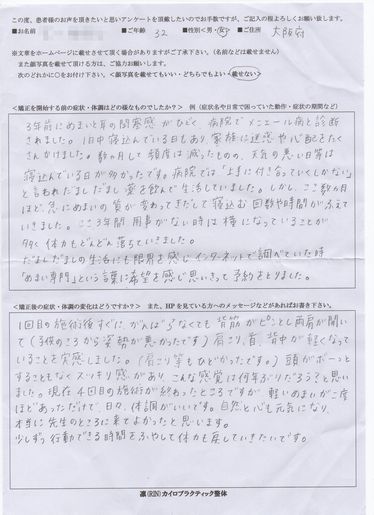 この度、患者様のお声を頂きたいと思いアンケートを頂戴したいのでお手数ですが、ご記入の程よろしくお願い致します。
■お名前 ■ご年齢 32 ■性別＜男・女＞ ■ご住所 大阪府
※文章をホームページに載せさせて頂く場合がありますがご了承下さい。(名前などは載せません)
また顔写真を載せて頂ける方は、ご協力お願いします。
次のどれかに〇をお付け下さい。＜顔写真を載せてもいい・どちらでもよい・載せない＞
＜矯正を開始する前の症状・体調はどの様なものでしたか？＞ 例（症状名や日常で困っていた動作・症状の期間など）
3年前にめまいと耳の閉塞感がひどく、病院でメニエール病と診断
されました。1日中寝込んでいる日もあり、家族に迷惑や心配をたく
さんかけました。数ヵ月して頻度は減ったものの、天気の悪い日等は
寝込んでいる日が多かったです。病院では「上手に付き合っていくしかない」
と言われだましだまし薬を飲んで生活していました。しかし、ここ数ヵ月
ほど、急にめまいの質が変わってきだして寝込む回数や時間がふえて
いきました。ここ3年間用事がない時は横になっていることが
多く体力もどんどん落ちていきました。
だましだましの生活にも限界を感じインターネットで調べていた時
「めまい専門」という言葉に希望を感じ思いきって予約をとりました。
＜矯正後の症状・体調の変化はどうですか？＞ また、HPを見ている方へのメッセージなどがあればお書き下さい。
1回目の施術後すぐに、がんばらなくても背筋がピンとし両肩が開い
て(子供のころから姿勢が悪かったです)肩こり、首、背中が軽くなって
いることを実感しました。(肩こり等もひどかったです。)頭がボーっと
することもなくスッキリ感があり、こんな感覚は何年ぶりだろう？と思い
ました。現在4回目の施術が終わったところですが、軽いめまいが一度
ほどあっただけで、日々、体調がいいです。自然と心も元気になり、
本当に先生のところに来てよかったと思います。
少しずつ行動できる時間をふやして体力も戻していきたいです。
凛(RIN)カイロプラクティック整体